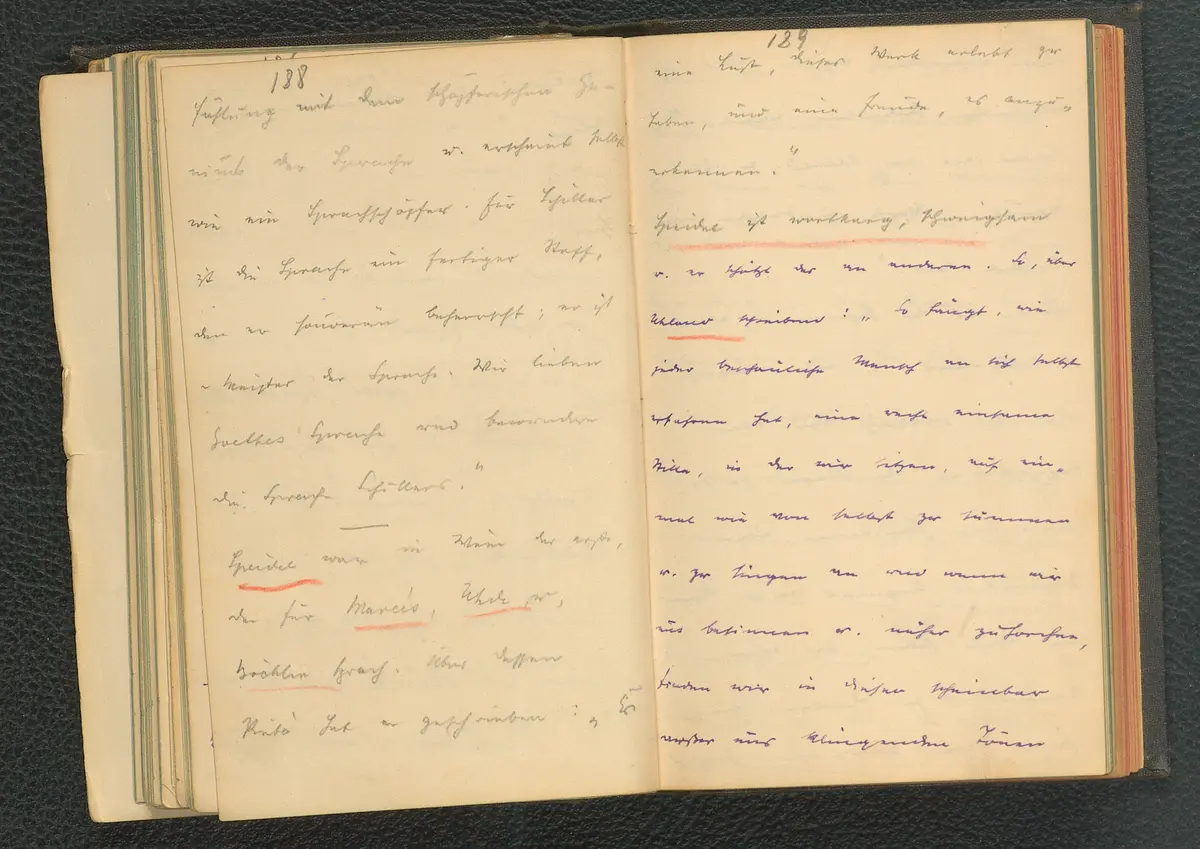 188
Fühlung mit dem schöpferischen Ge-
nius der Sprache u. erscheint selbst
wie ein Sprachschöpfer. Für Schiller
ist die Sprache ein fertiger Stoff,
den er souverän beherrscht; er ist
Meister der Sprache. Wir lieben
Goethes Sprache und bewundern
die Sprache Schillers."
Speidel war in Wien der erste,
der für Marées, Uhde u.
Böcklin sprach. Über dessen
Pietà hat er geschrieben: „Es
189
eine Lust, dieses Werk erlebt zu
haben, und eine Freude, es anzu„
erkennen."
Speidel ist wortkarg, schweigsam
u. er schätzt das an anderen. So, über
Uhland schreibend: „So fängt, wie
jeder beschauliche Mensch an sich selbst
erfahren hat, eine recht einsame
Stille, in der wir sitzen, auf ein„
mal wie von selbst zu summen
u. zu singen an und wenn wir
uns besinnen u. näher zuhorchen,
finden wir in diesen scheinbar
außer uns klingenden Tönen